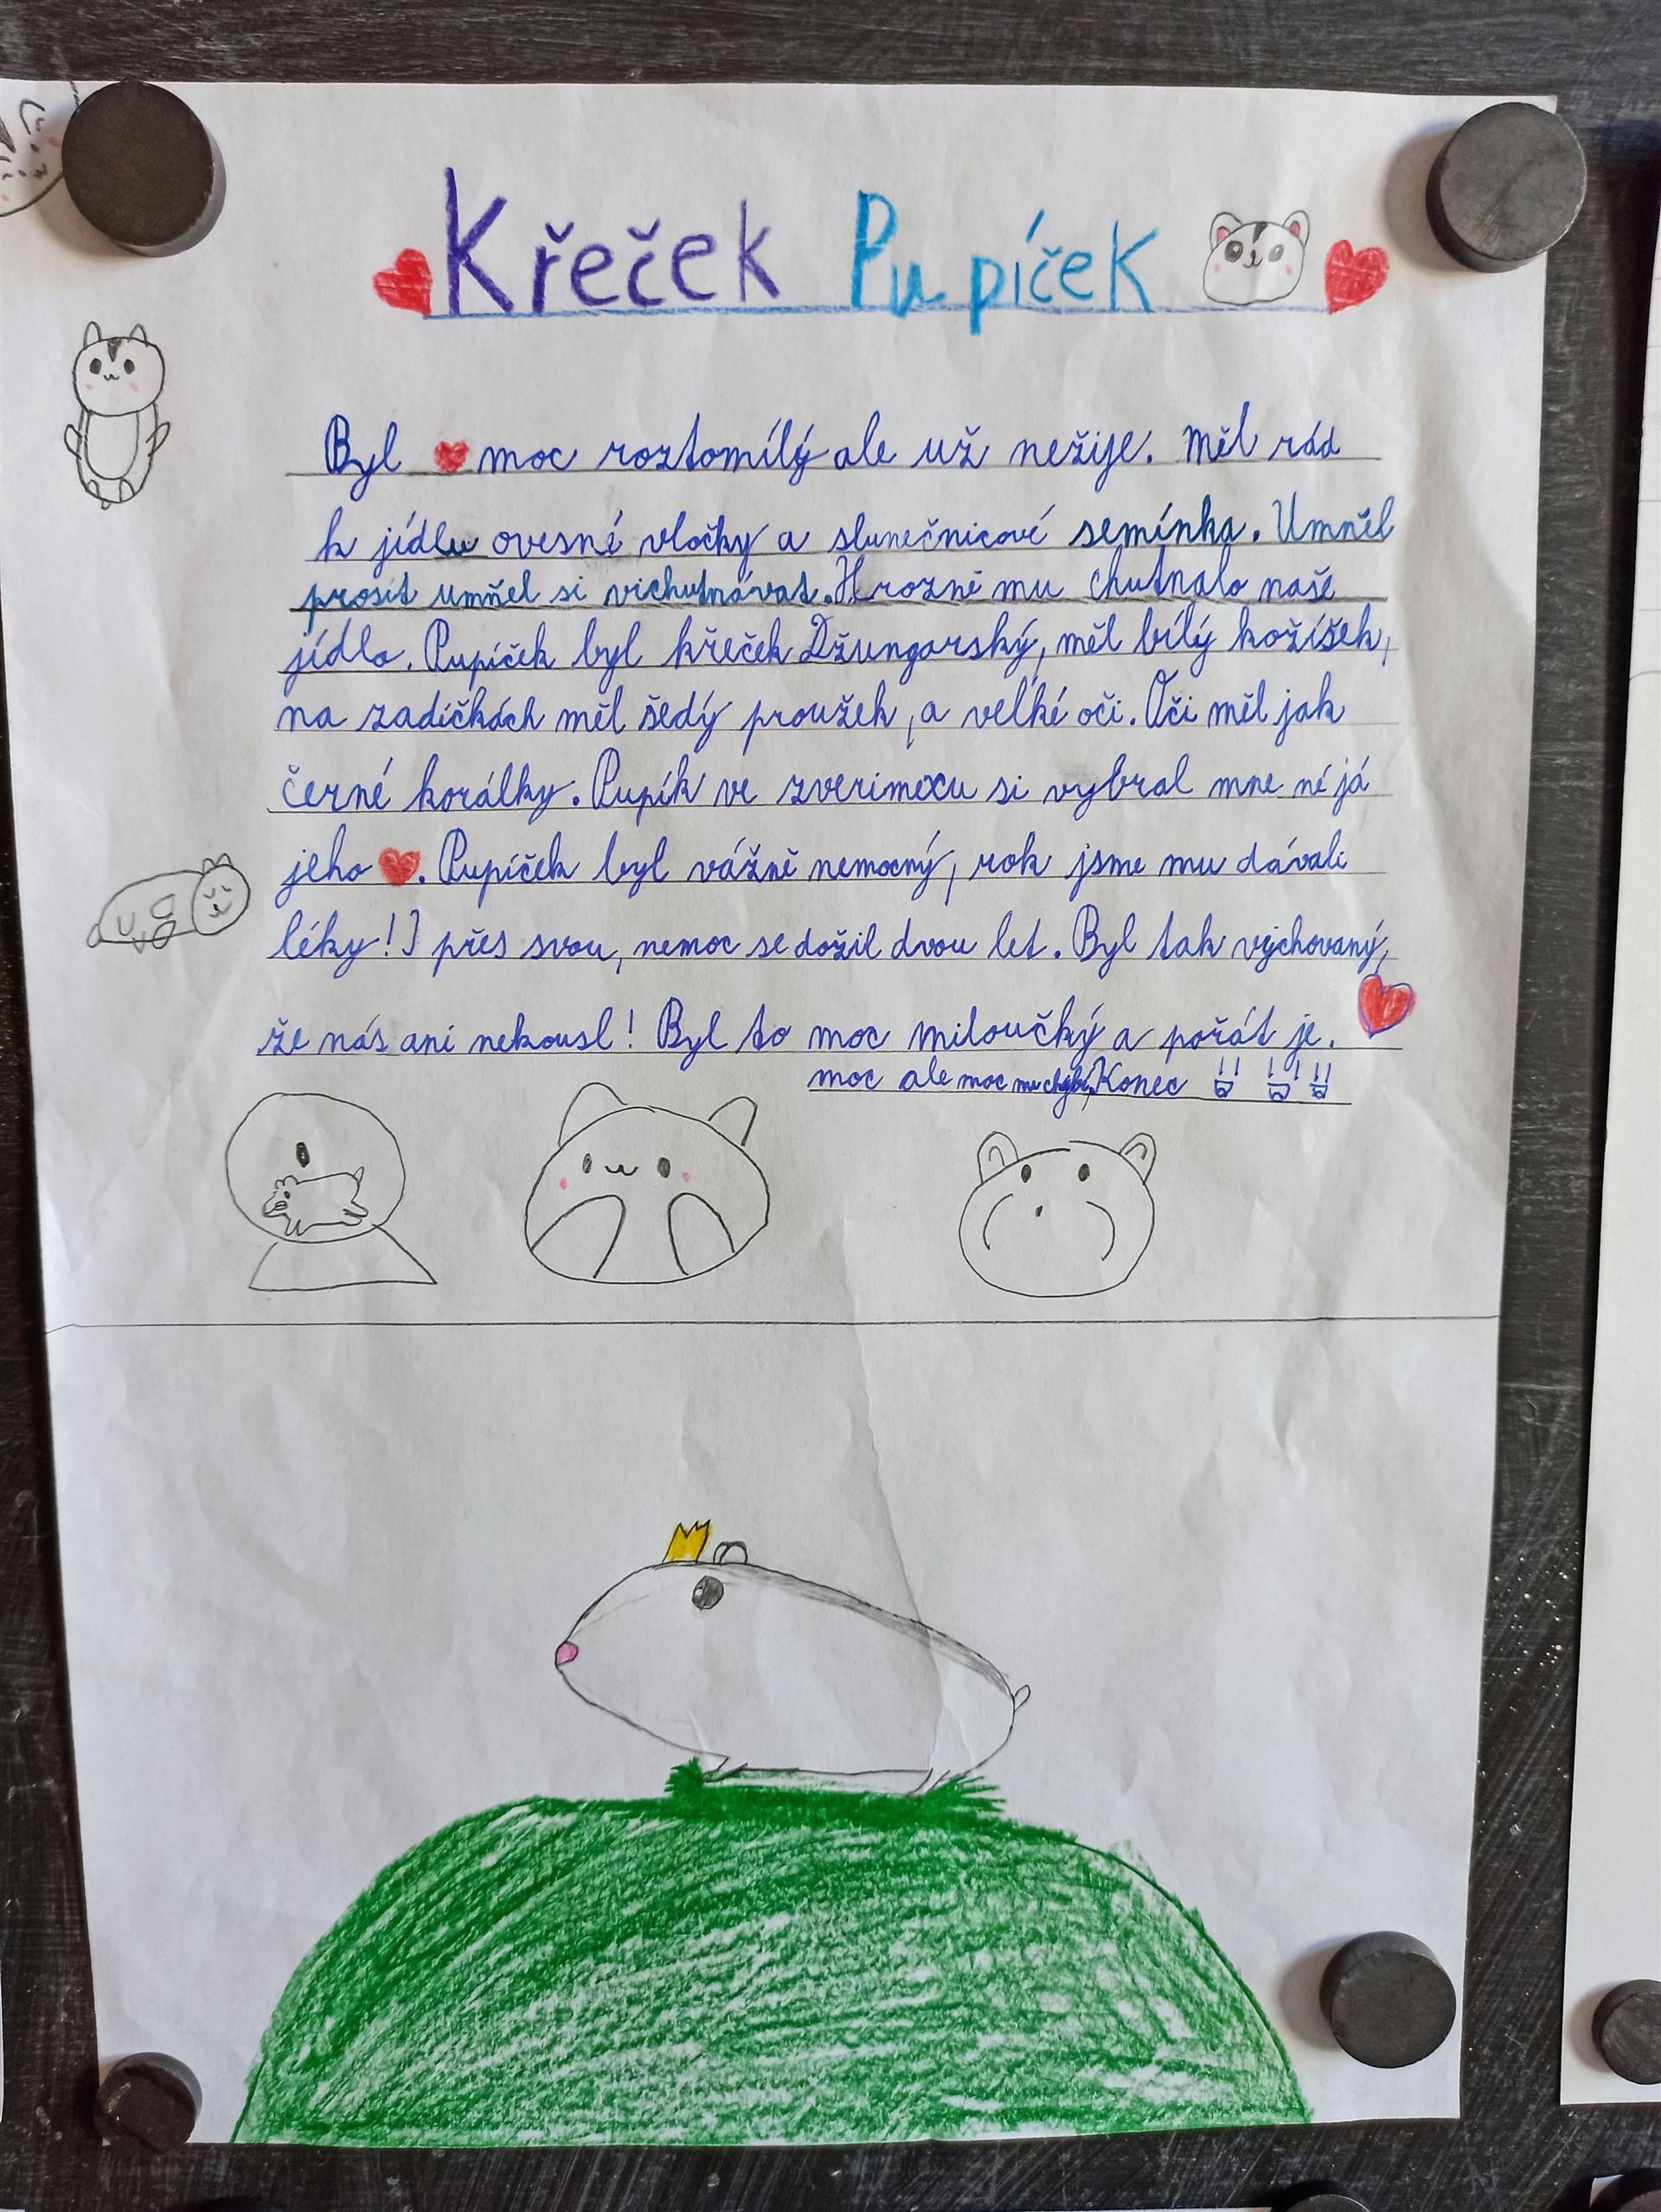 Křeček Pupíček
Byl moc roztomílý ale už nežije. Měl rád
k jídlu ovesné vločky a slunečnicové semínka. Umněl
prosit umňel si vichutnávat. Hrozně mu chutnalo naše
jídlo. Pupíček byl křeček Džungarský, měl bílý kožíšek,
na zadíčkách měl šedý proužek, a velké oči. Oči měl jak
černé korálky. Pupík ve zverimexu si vybral mne né já
jeho. Pupíček byl vážně nemocný, rok jsme mu dávali
léky! I přes svou, nemoc se dožil dvou let. Byl tak vychovaný,
že nás ani nekousl! Byl to moc miloučký a pořát je.
moc ale moc mu chybí, Konec !! !! !!